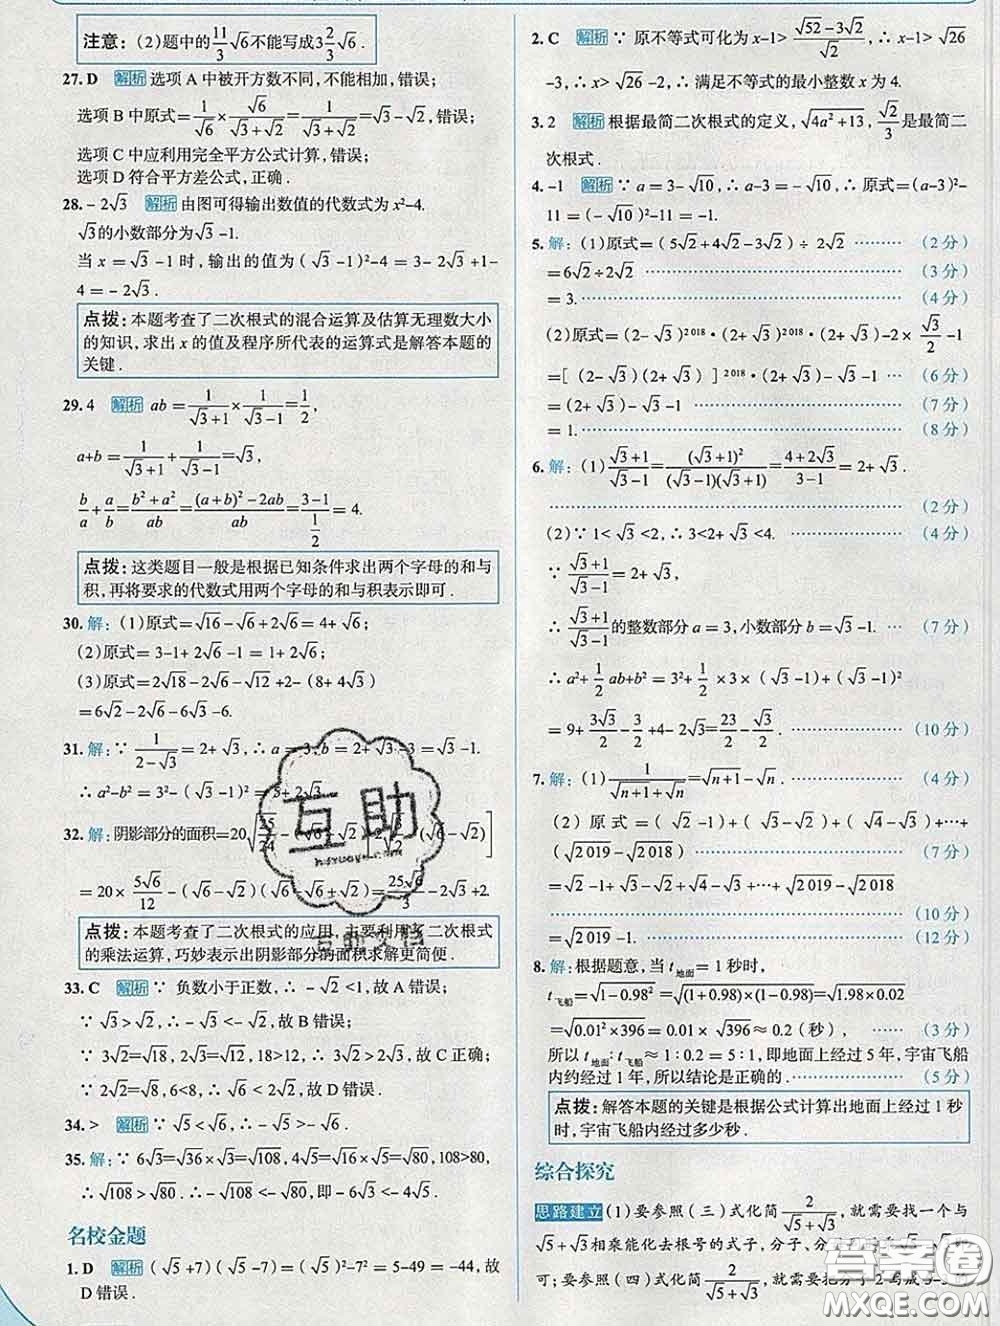 注意：(2)题中的11/3√6不能写成3 2/3√6.
27.D 解析 选项 A 中被开方数不同,不能相加,错误;
选项 B 中原式=1/√6×√6/(√3+√2)=1/(√3+√2)=√3-√2,错误;
选项 C 中应利用完全平方公式计算,错误;
选项 D 符合平方差公式,正确.
28.-2√3 解析 由图可得输出数值的代数式为 x²-4.
√3的小数部分为√3-1.
当 x=√3-1时,输出的值为(√3-1)²-4=3-2√3+1-
4=-2√3.
点拨：本题考查了二次根式的混合运算及估算无理数大小
的知识,求出 x 的值及程序所代表的运算式是解答本题的
关键.
29.4 解析 ab=1/(√3+1)×1/(√3-1)=1/2,
a+b=1/(√3+1)+1/(√3-1)=√3,
b/a+a/b=(b²+a²)/ab=((a+b)²-2ab)/ab=(3-1)/(1/2)=4.
点拨：这类题目一般是根据已知条件求出两个字母的和与
积,再将要求的代数式用两个字母的和与积表示即可.
30.解：(1)原式=√16-√6+2√6=4+√6;
(2)原式=3-1+2√6-1=1+2√6;
(3)原式=2√18-2√6-√12+2-(8+4√3)
=6√2-2√6-6√3-6.
31.解：∵1/(2-√3)=2+√3,∴a=3,b=2+√3-3=√3-1.
∴a²-b²=3²-(√3-1)²=5+2√3.
32.解：阴影部分的面积=20
=20×5√6/12-(√6-√2)(√6-√6+√2)=25√6/3-2√3+2.
点拨：本题考查了二次根式的应用,主要利用了二次根式
的乘法运算,巧妙表示出阴影部分的面积求解更简便.
33.C 解析 ∵ 负数小于正数,∴-√2<1,故 A 错误;
∵√3>√2,∴-√3<-√2,故 B 错误;
∵3√2=√18,2√3=√12,18>12,∴3√2>2√3,故 C 正确;
∵2√2=√8,6<8,∴√6<2√2,故 D 错误.
34.> 解析 ∵√5<√6,∴-√5>-√6.
35.解：∵6√3=√36×√3=√108,4√5=√16×√5=√80,108>80,
∴√108>√80.∴-√108<-√80,即-6√3<-4√5.
名校金题
1.D 解析 (√5+7)(√5-7)=(√5)²-7²=5-49=-44,故
D 错误.
2.C 解析 ∵原不等式可化为 x-1>(√52-3√2)/√2,∴x-1>√26
-3,∴x>√26-2,∴满足不等式的最小整数 x 为 4.
3.2 解析 根据最简二次根式的定义,√(4a²+13),√2/3是最简二
次根式.
4.-1 解析 ∵a=3-√10,∴a-3=-√10,∴原式=(a-3)²-
11=(-√10)²-11=-1.
5.解：(1)原式=(5√2+4√2-3√2)÷2√2 ……… (2 分)
=6√2÷2√2 ……… (3 分)
=3. ……… (4 分)
(2)原式=(2-√3)²⁰¹⁸·(2+√3)²⁰¹⁸·(2+√3)-2×√3/2-1
=[(2-√3)(2+√3)]²⁰¹⁸·(2+√3)-√3-1 …… (6 分)
=(2+√3)-√3-1 ……… (7 分)
=1. ……… (8 分)
6.解：(1)(√3+1)/(√3-1)=(√3+1)²/((√3-1)(√3+1))=(4+2√3)/(3-1)=2+√3.
……… (2 分)
(2)∵1<√3<2,∴3<2+√3<4. ……… (4 分)
∵(√3+1)/(√3-1)=2+√3,
∴(√3+1)/(√3-1)的整数部分 a=3,小数部分 b=√3-1. …… (7 分)
∴a²+1/2ab+b²=3²+1/2×3×(√3-1)+(√3-1)²
=9+3√3/2-3/2+4-2√3=23/2-√3/2. ……… (10 分)
7.解：(1)1/(√(n+1)+√n)=√(n+1)-√n. ……… (4 分)
(2)原式=(√2-1)+(√3-√2)+(√4-√3)+…+
(√2 019-√2 018) ……… (7 分)
=√2-1+√3-√2+√4-√3+…+√2 019-√2 018
……… (10 分)
=√2 019-1. ……… (12 分)
8.解：根据题意,当 t地面=1 秒时,
t飞船=√(1-0.98²)=√((1+0.98)×(1-0.98))=√(1.98×0.02)
=√(0.01²×396)=0.01×√396≈0.2(秒), …… (3 分)
所以 t地面:t飞船≈1:0.2=5:1,即地面上经过 5 年,宇宙飞船
内约经过 1 年,所以结论是正确的. ……… (5 分)
点拨：解答本题的关键是根据公式计算出地面上经过 1 秒
时,宇宙飞船内经过多少秒.
综合探究
思路建立 (1)要参照(三)式化简2/(√5+√3),就需要找一个与
√5+√3相乘能化去根号的式子,分子、分
可;要参照(四)式化简2/(√5+√3),就需要把分子 2 写成 5-3
互助
互助文档
答案圈
MXQE.COM